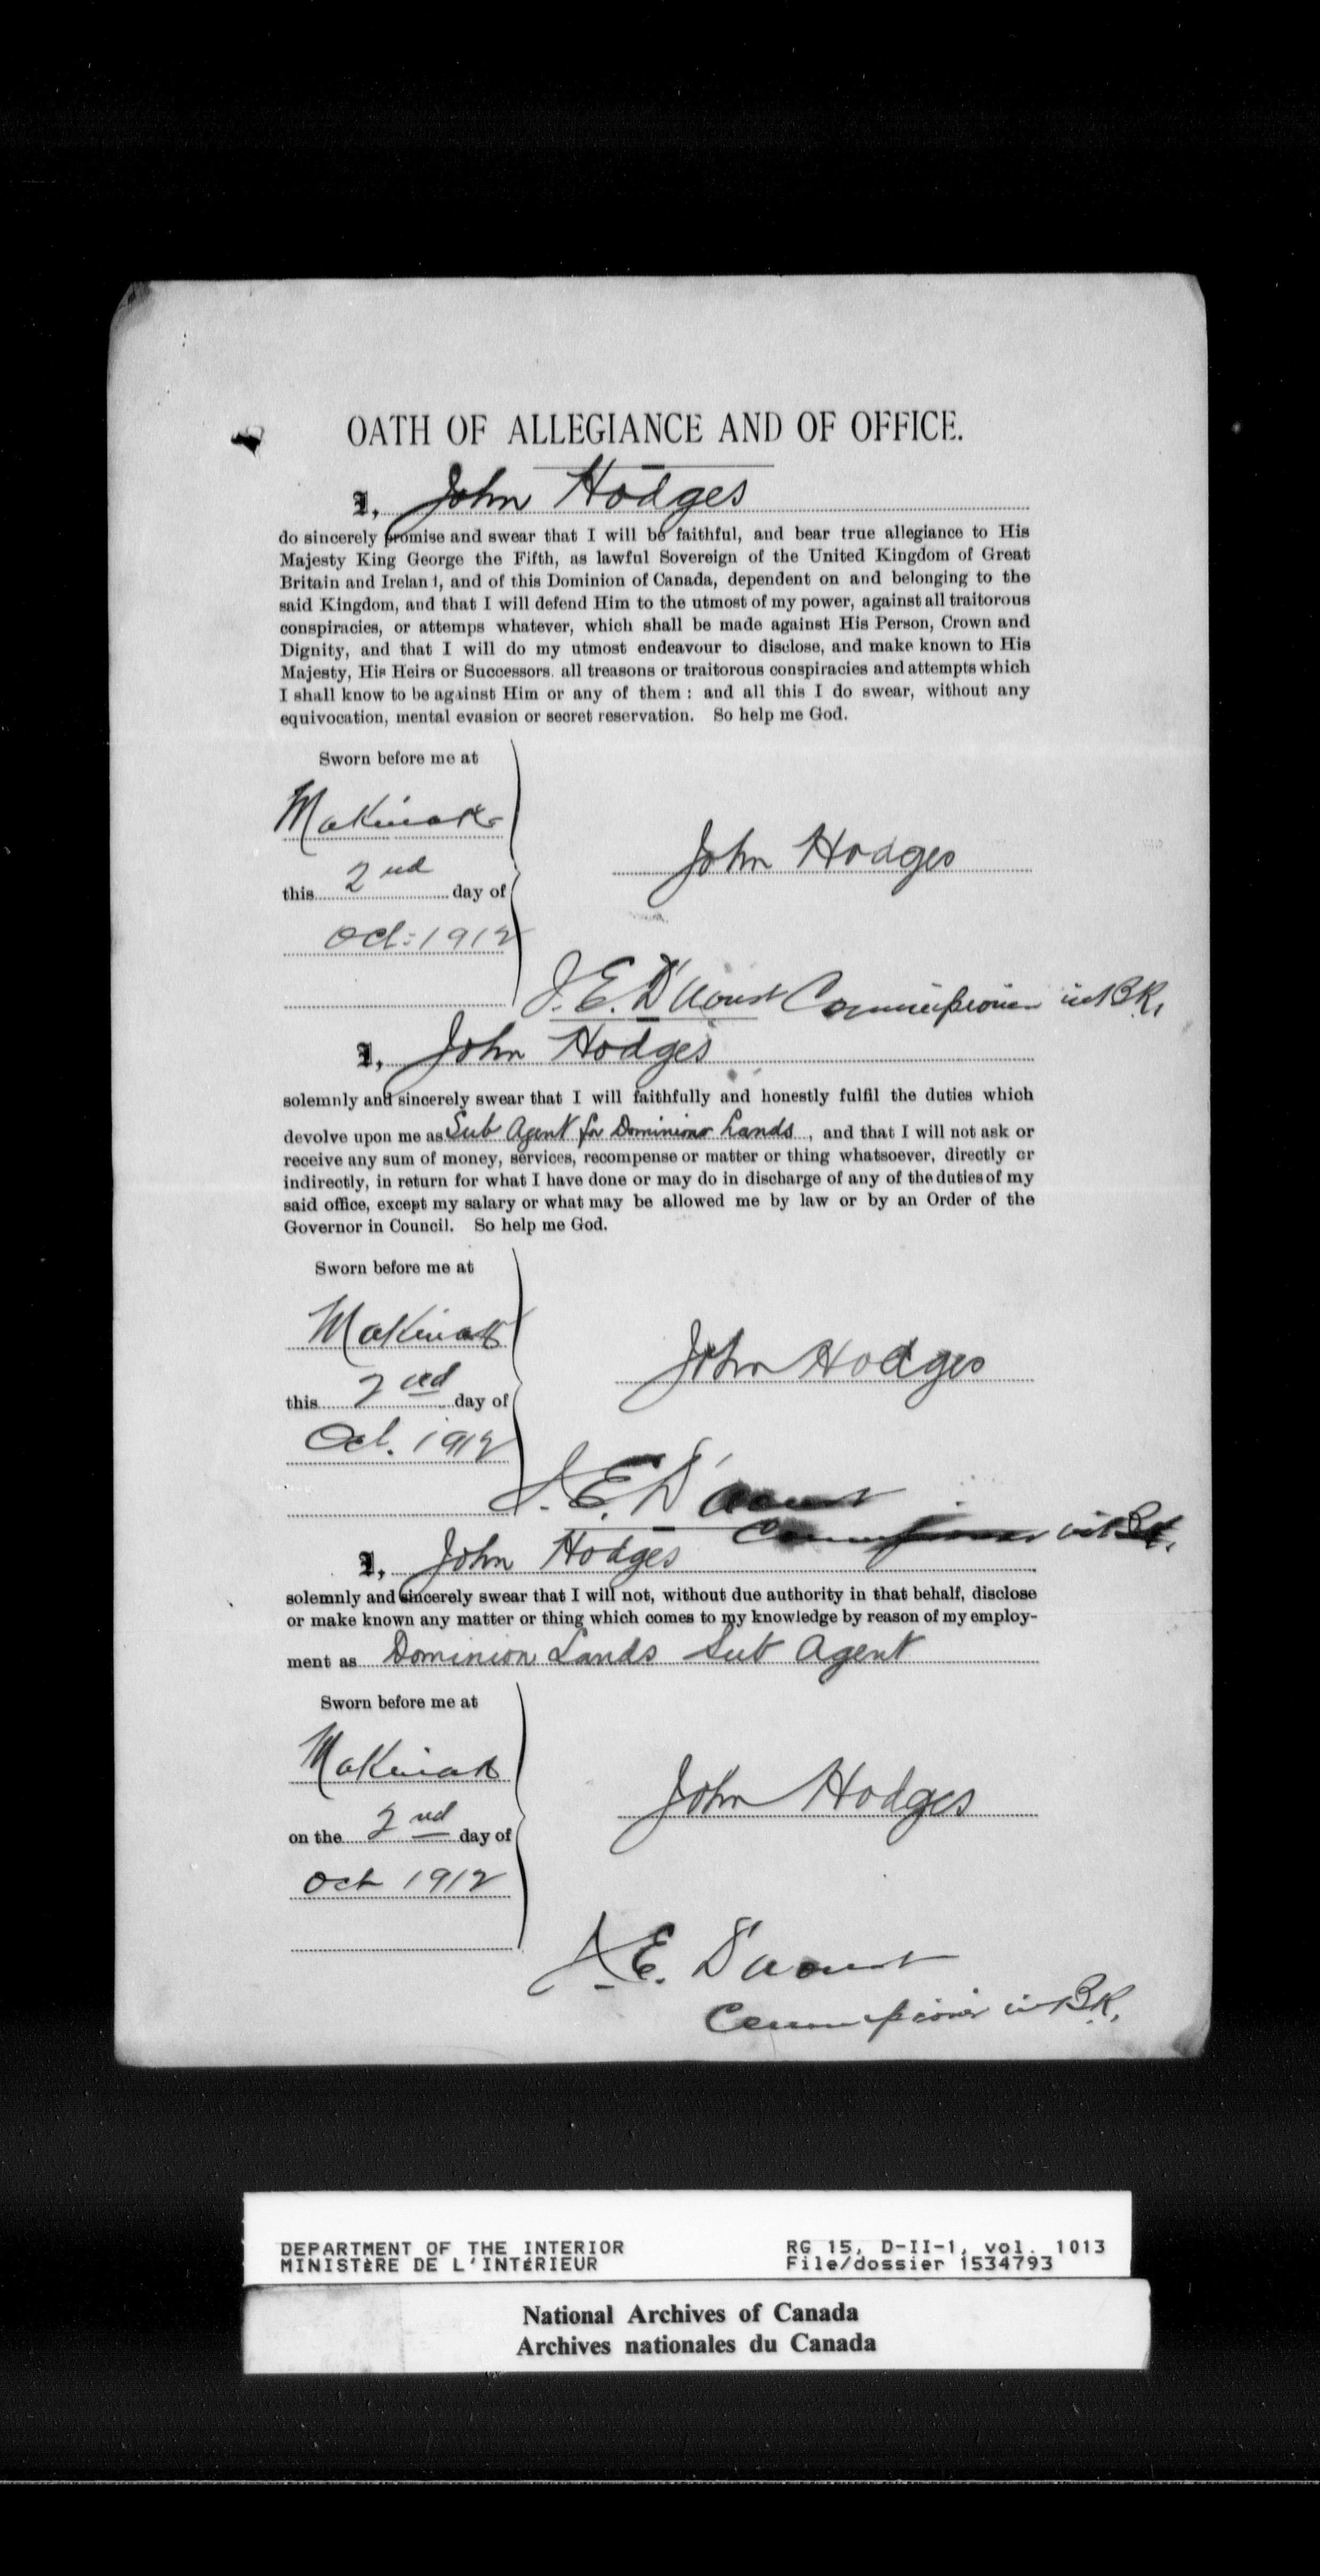 OATH OF ALLEGIANCE AND OF OFFICE.
I, John Hodges
do sincerely promise and swear that I will be faithful, and bear true allegiance to His
Majesty King George the Fifth, as lawful Sovereign of the United Kingdom of Great
Britain and Ireland, and of this Dominion of Canada, dependent on and belonging to the
said Kingdom, and that I will defend Him to the utmost of my power, against all traitorous
conspiracies, or attemps whatever, which shall be made against His Person, Crown and
Dignity, and that I will do my utmost endeavour to disclose, and make known to His
Majesty, His Heirs or Successors. all treasons or traitorous conspiracies and attempts which
I shall know to be against Him or any of them : and all this I do swear, without any
equivocation, mental evasion or secret reservation. So help me God.
Sworn before me at
Makinak
John Hodges
this 2nd day of
Oct: 1912
J. E. D'Aoust Commissioner in B.R.
I, John Hodges
solemnly and sincerely swear that I will faithfully and honestly fulfil the duties which
devolve upon me as Sub Agent for Dominion Lands, and that I will not ask or
receive any sum of money, services, recompense or matter or thing whatsoever, directly or
indirectly, in return for what I have done or may do in discharge of any of the duties of my
said office, except my salary or what may be allowed me by law or by an Order of the
Governor in Council. So help me God.
Sworn before me at
Makinak
John Hodges
this 2nd day of
Oct. 1912
J. E. D'Aoust
Commissioner in B.R.
I, John Hodges
solemnly and sincerely swear that I will not, without due authority in that behalf, disclose
or make known any matter or thing which comes to my knowledge by reason of my employ-
ment as Dominion Lands Sub Agent
Sworn before me at
Makinak
John Hodges
on the 2nd day of
Oct 1912
J. E. D'Aoust
Commissioner in B.R.
DEPARTMENT OF THE INTERIOR RG 15, D-II-1, vol. 1013
MINISTÈRE DE L'INTÉRIEUR File/dossier 1534793
National Archives of Canada
Archives nationales du Canada